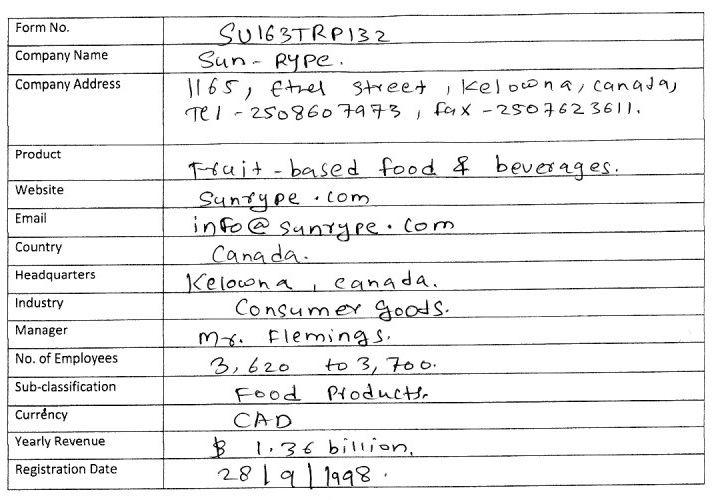 Form No. SU163TRP132
Company Name Sun-Rype.
Company Address 1165, Ethel street, Kelowna, canada,
Tel - 2508607973, fax - 2507623611.
Product Fruit-based food & beverages.
Website Sunrype.com
Email info@sunrype.com
Country Canada.
Headquarters Kelowna, canada.
Industry Consumer goods.
Manager Mr. Flemings.
No. of Employees 3,620 to 3,700.
Sub-classification Food Products.
Currency CAD
Yearly Revenue $ 1.36 billion.
Registration Date 28/9/1998.